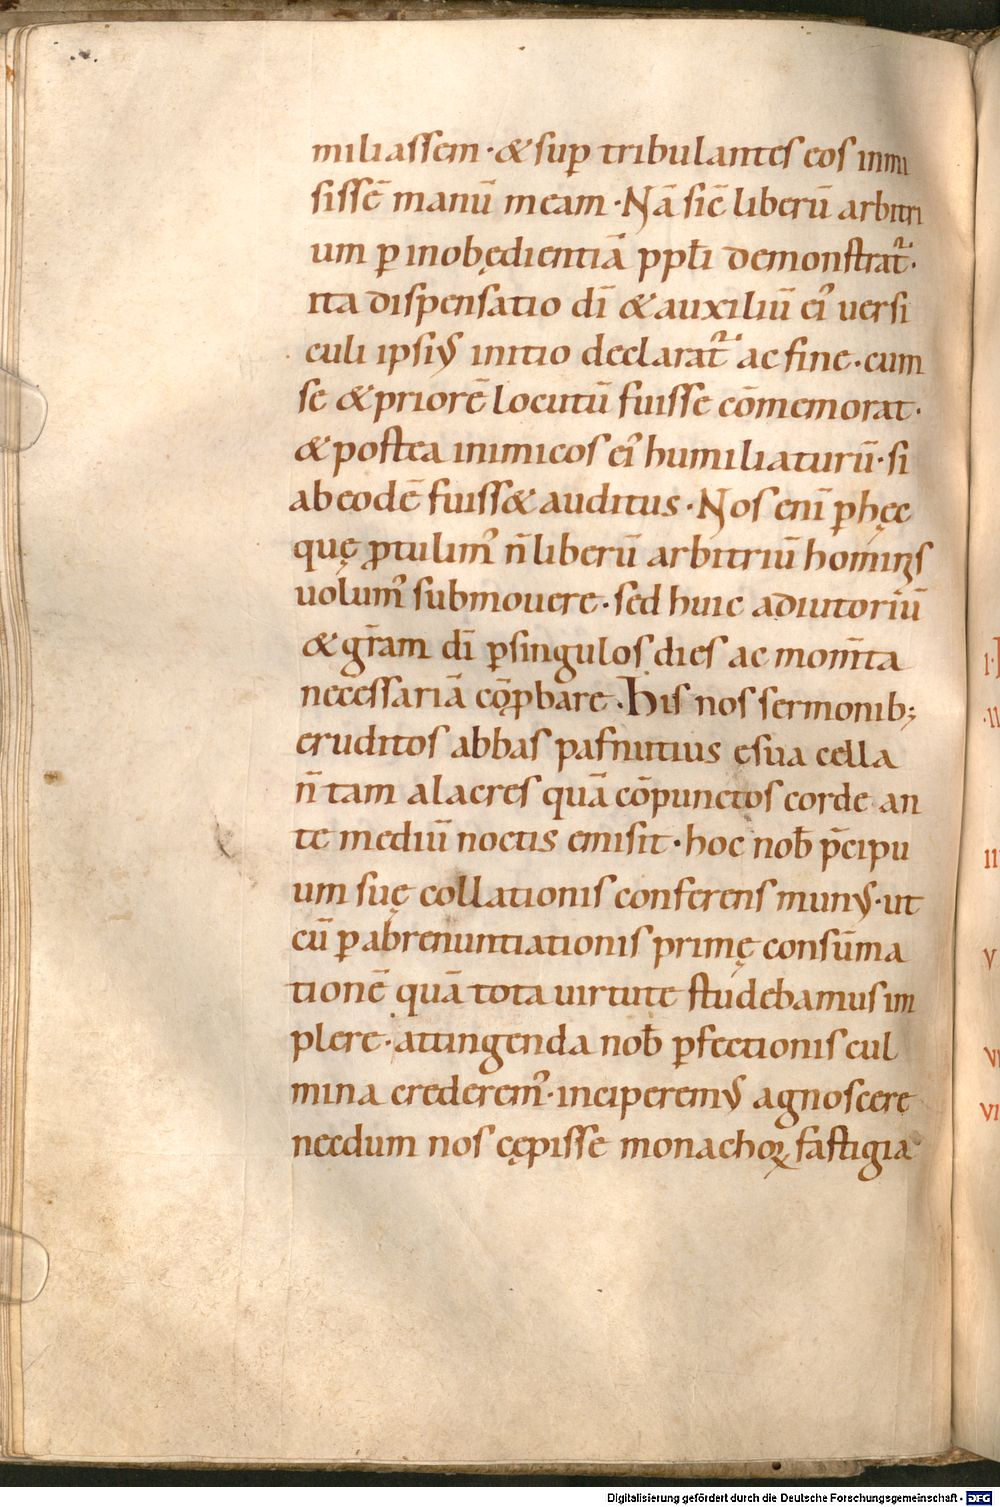 miliassem · & sup̱ tribulantes eos inmi
sissē manū meam · Nā sic̄ liberū arbitri
um p̱ inobędientiā pp̄li demonstrat᷑ ·
ita dispensatio dī & auxiliū ei᾽ uersi
culi ipsiꝰ initio declarat᷑ ac fine · cum
se & priorē locutū fuisse cōmemorat ·
& postea inimicos ei᾽ humiliaturū · si
ab eodē fuiss& auditus · Nos enī p̱ hęc
quę ꝓtulim᾽ n̄ liberū arbitriū hominis
uolum᾽ submouere · sed huic adiutoriū
& gr̄am dī p̱ singulos dies ac mom̄ta
necessariā cōꝓbare · His nos sermonib;
eruditos abbas pafnutius e sua cella
n̄ tam alacres quā cōpunctos corde an
te mediū noctis emisit · hoc nob̄ p̄cipu
um suę collationis conferens munꝰ · ut
cū p̱ abrenuntiationis primę consūma
tionē quā tota uirtute studebamus im
plere · attingenda nob̄ p̱fectionis cul
mina crederem᾽ · inciperemꝰ agnoscere
necdum nos cępisse monachoꝝ fastigia
I ·
· II
III
V
VI
VI
Digitalisierung gefördert durch die Deutsche Forschungsgemeinschaft - DFG